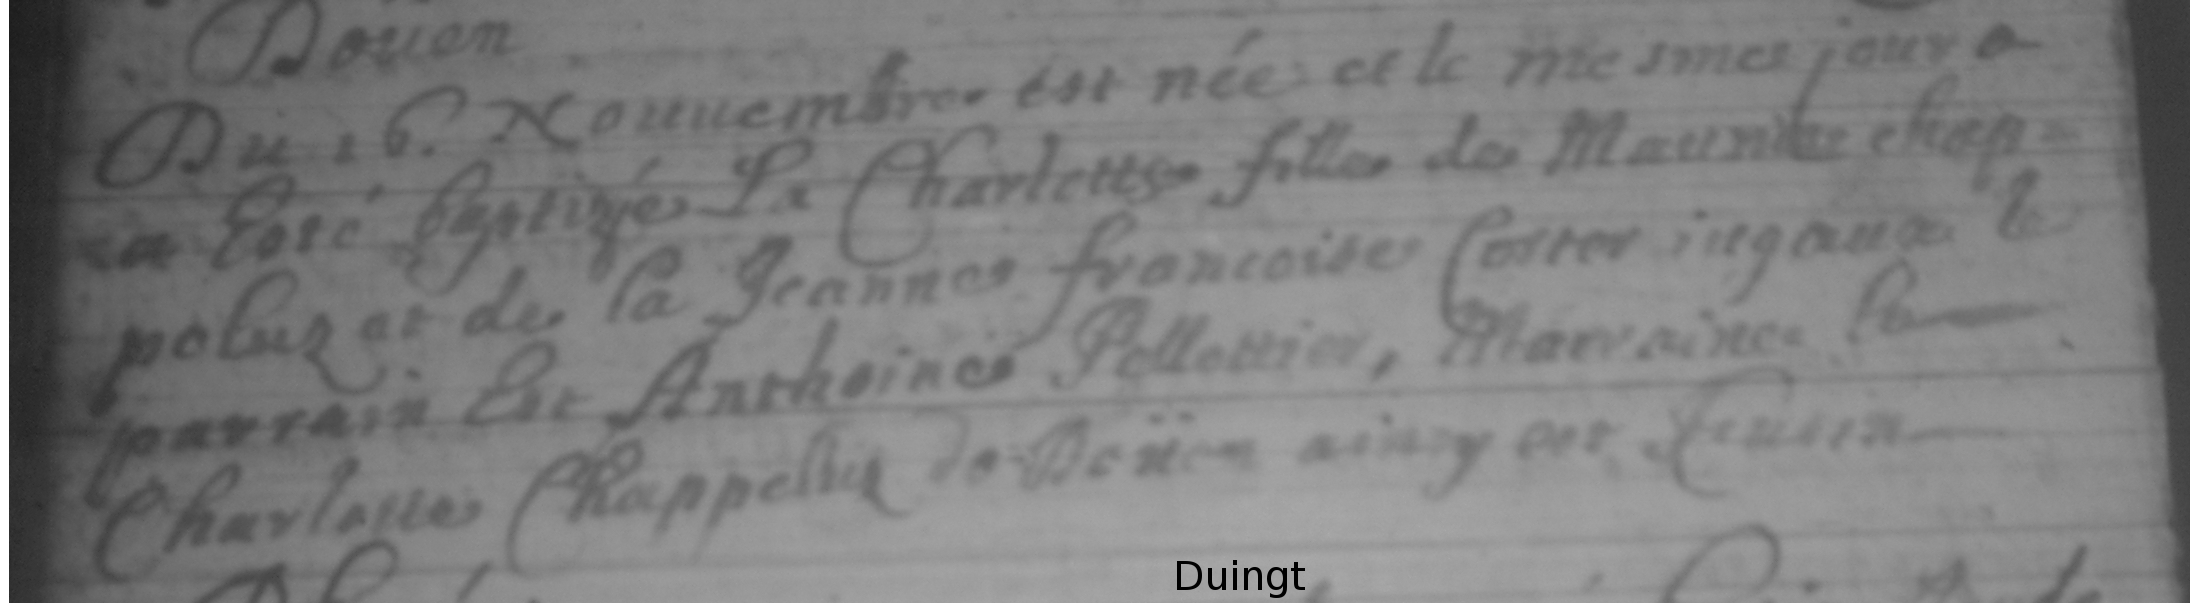 Doüen
Du 16. Nouuembre est née et le mesmes jour a
esté baptizée La Charlotte fille de Maurise chap=
poluz et de la Jeanne francoise Coster iugaux le
parrain Est Anthoine Pellottier, Marraine la
Charlotte Chappelluz de Doüen ainsy est
Duingt